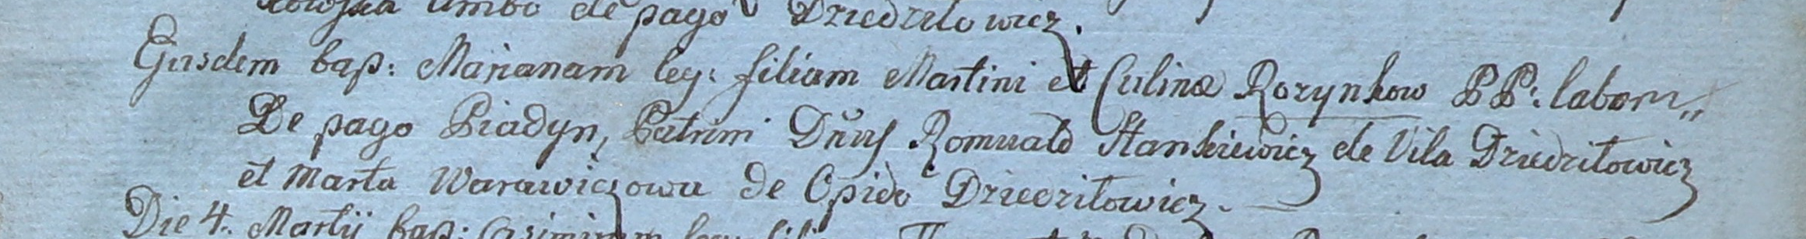 ambo de pago Dziedziłowicz.
Ejusdem bap: Marianam leg: filiam Martini et Culinæ Rozynkow PP: labor
De pago Piadyn, Patrini Dnus Romuald Stankiewicz de Vila Dziedziłowicz
et Marta Warawiczowa de Opido Dziedziłowicz.
Die 4. Martij bap: Casimirum leg: